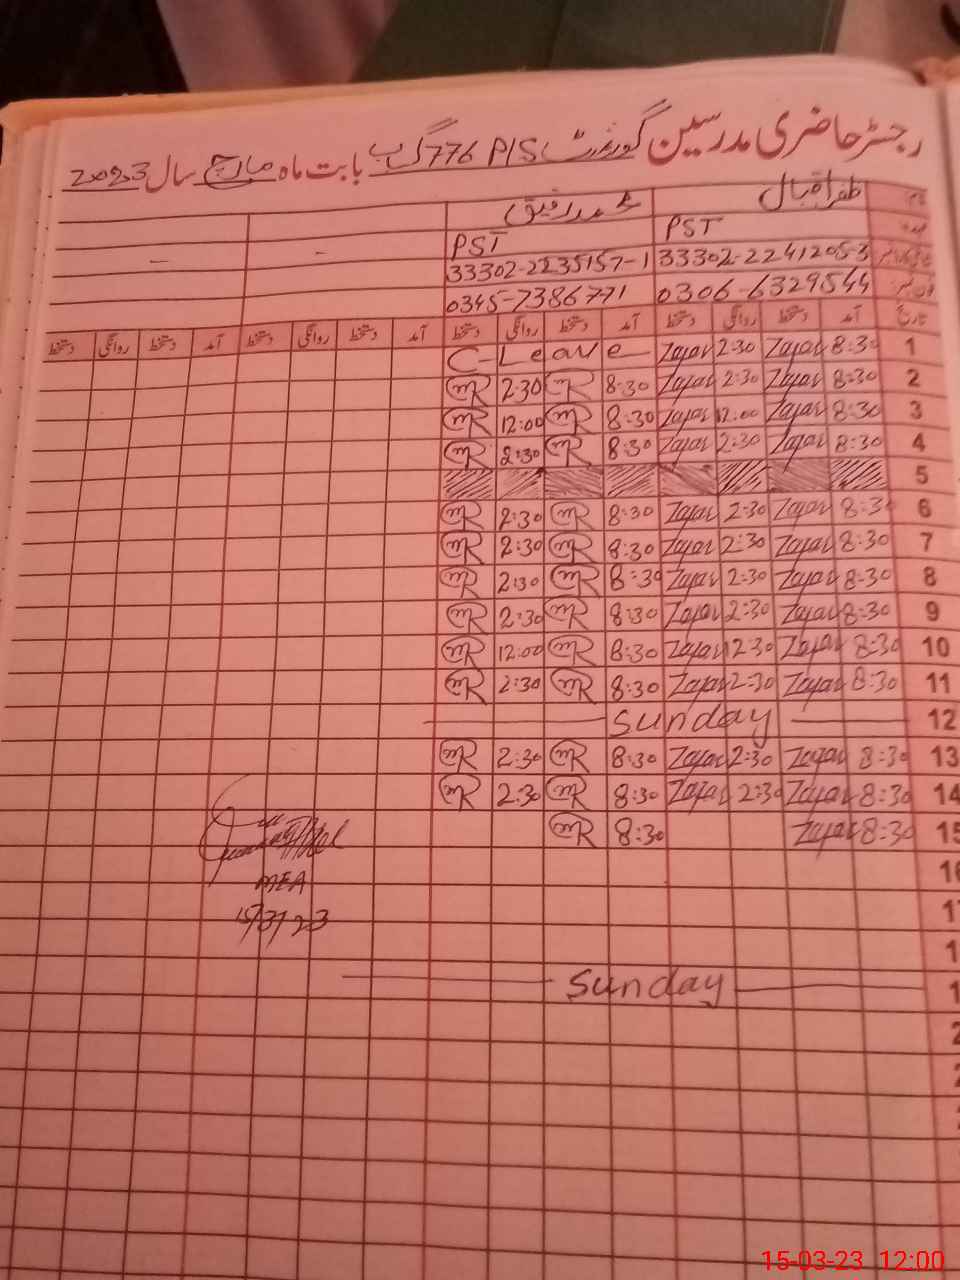 رجسٹر حاضری مدرسین گورنمنٹ P/S 776 گ ب بابت ماہ مارچ سال 2023
نام ظفر اقبال محمد رفیق
عہدہ PST PST - -
33302-2241205-3 33302-2235157-1
فون نمبر 0306-6329544 0345-7386771
تاریخ آمد دستخط روانگی دستخط آمد دستخط روانگی دستخط آمد دستخط روانگی دستخط آمد دستخط روانگی دستخط
1 8:30 Zafar 2:30 Zafar C-Leave
2 8:30 Zafar 2:30 Zafar 8:30 MR 2:30 MR
3 8:30 Zafar 12:00 Zafar 8:30 MR 12:00 MR
4 8:30 Zafar 2:30 Zafar 8:30 MR 2:30 MR
5
6 8:30 Zafar 2:30 Zafar 8:30 MR 2:30 MR
7 8:30 Zafar 2:30 Zafar 8:30 MR 2:30 MR
8 8:30 Zafar 2:30 Zafar 8:30 MR 2:30 MR
9 8:30 Zafar 2:30 Zafar 8:30 MR 2:30 MR
10 8:30 Zafar 12:30 Zafar 8:30 MR 12:00 MR
11 8:30 Zafar 2:30 Zafar 8:30 MR 2:30 MR
12 Sunday
13 8:30 Zafar 2:30 Zafar 8:30 MR 2:30 MR
14 8:30 Zafar 2:30 Zafar 8:30 MR 2:30 MR
15 8:30 Zafar 8:30 MR
MEA
15/3/23
16
Sunday
15-03-23 12:00